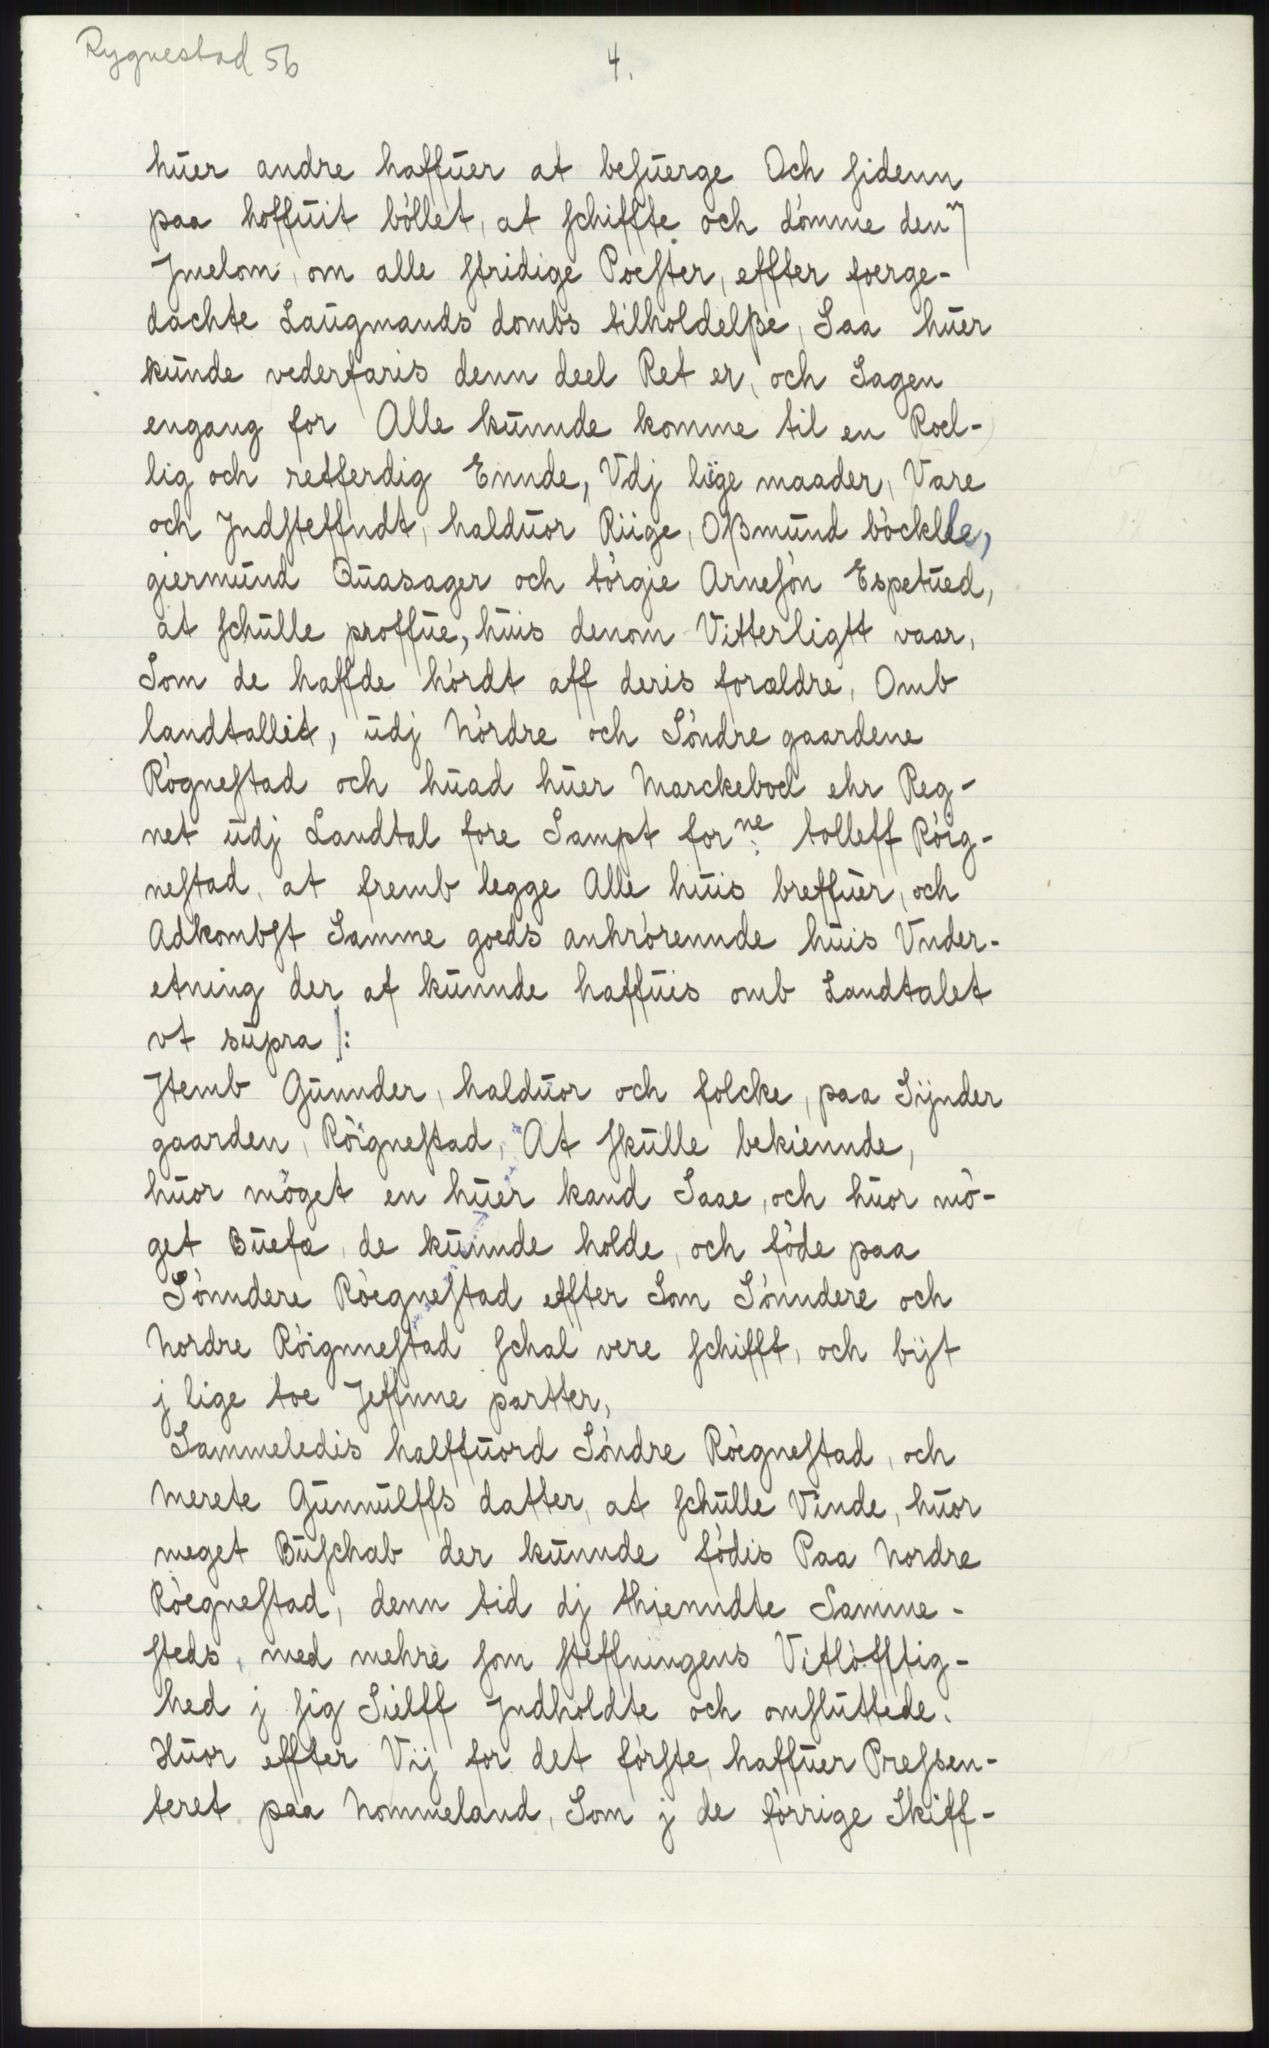 Rygnestad 56
4.
huer andre haffuer at besuerge Och sidenn
paa hoffuit böllet, at schiffte och dömme denn
Jmelom, om alle stridige Poester, effter foerge-
dachte Laugmands dombs tilholdelße, Saa huer
kunde vederfaris denn deel Ret er, och Sagen
engang for Alle kunnde komme til en Roel-
lig och retferdig Ennde, Vdj liige maader, Vare
och Jndsteffndt, halduor Riige, Oßmund böcklle,
giermund Quasager och törgie Arnesön Espetued,
at schulle proffue, huis denom Vitterligtt vaar,
Som de haffde hördt aff deris forældre, Omb
landtallit, udj Nördre och Söndre gaardene
Rögnestad och huad huer Marckebod ehr Reg-
net udj Landtal fore Sampt forne: tolleff Röig-
nestad, at fremb legge Alle huis breffuer, och
Adkombst Samme goeds anhrörennde huis Vnder-
etning der af kunnde haffuis omb Landtalet
vt supra /:
Jtemb Gunnder, halduor och folcke, paa Sÿnder
gaarden, Röignestad, At skulle bekiennde,
huor möget en huer kand Saae, och huor mö-
get Buefæ, de kunnde holde, och föde paa
Sönndere Röegnestad effter Som Sönndere och
Nordre Röignnestad schal vere schifft, och bÿt
j lige toe Jeffnne partter,
Sammeledis halffuord Söndre Röegnestad, och
Merete Gunnulffs datter, at schulle Vinde, huor
meget Buschab der kunnde födis Paa Nordre
Röegnestad, denn tid dj thienndte Samme-
steds, med mehre som steffningens Vitlöfftig-
hed j sig Sielff Jndholdte och omsluttede.
Huor effter Vij for det förste, haffuer Pressen-
teret paa Nommeland, Som j de förrige Skiff-